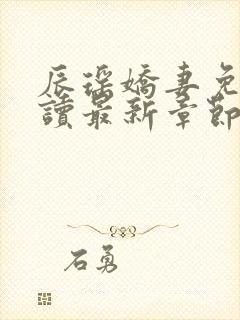 辰瑤嬌妻免
讀最新章節
石勇